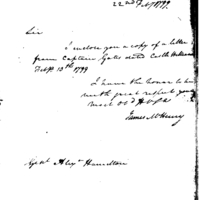 22nd Feby 1799
Sir
I enclose you a copy of a letter
from Captain Gates dated Castle
Feby 13th 1799
I have the honor to be
with great respect your
most obd H
James McHenry
Genl Alexr Hamilton